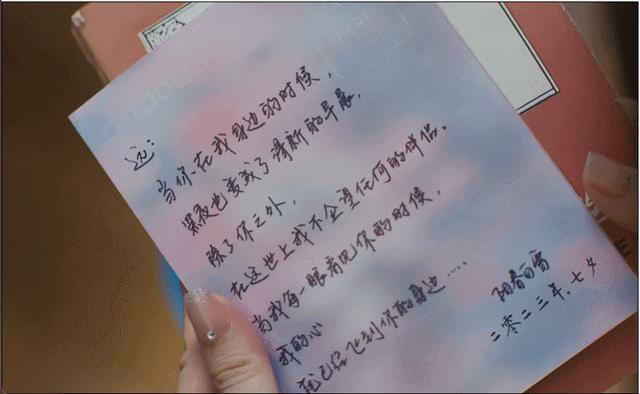 远：
当你在我身边的时候，
黑夜也变成了清新的早晨，
除了你之外，
在这世上我不企望任何的伴侣，
当我每一眼看见你的时候，
我的心
就已经飞到你的身边……
阳春白雪
二零二三年七夕